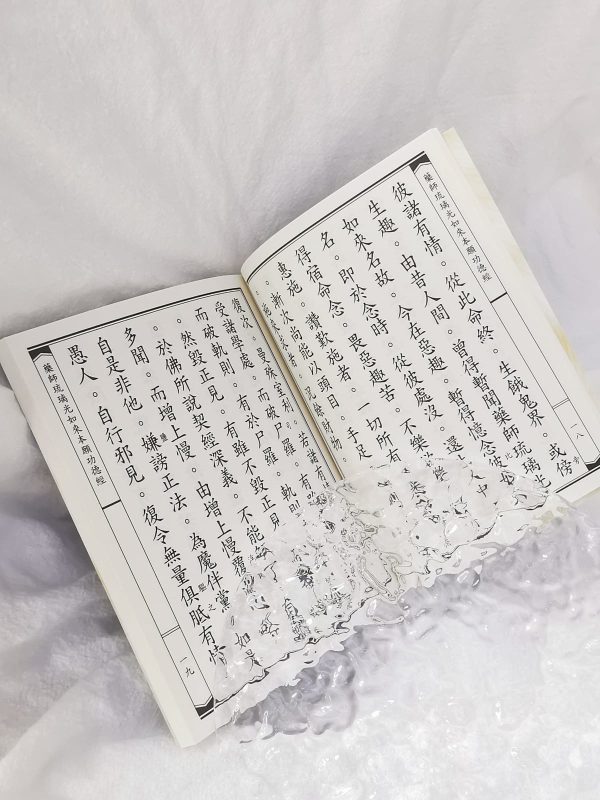 藥師琉璃光如來本願功德經
一八
彼諸有情。從此命終。生餓鬼界。或傍
生趣。由昔人間。曾得暫聞藥師琉璃光
如來名故。今在惡趣。暫得憶念彼
名。即於念時。從彼處沒。還 中
得宿命念。畏惡趣苦。不樂
惠施。讚歎施者。一切所有
。漸次尚能以頭目。手足
施來求者。況餘財物。
復次。曼殊室利。若諸有
受諸學處。 尸羅。 軌則
而破軌則。有於尸羅。軌則
然毀正見。有雖不毀正見。不能
於佛所說契經深義。 有
多聞。而增上慢。由增上慢覆
自是非他。嫌謗正法。為魔伴黨。如是
愚人。自行邪見。復令無量俱胝有情
藥師琉璃光如來本願功德經
一九